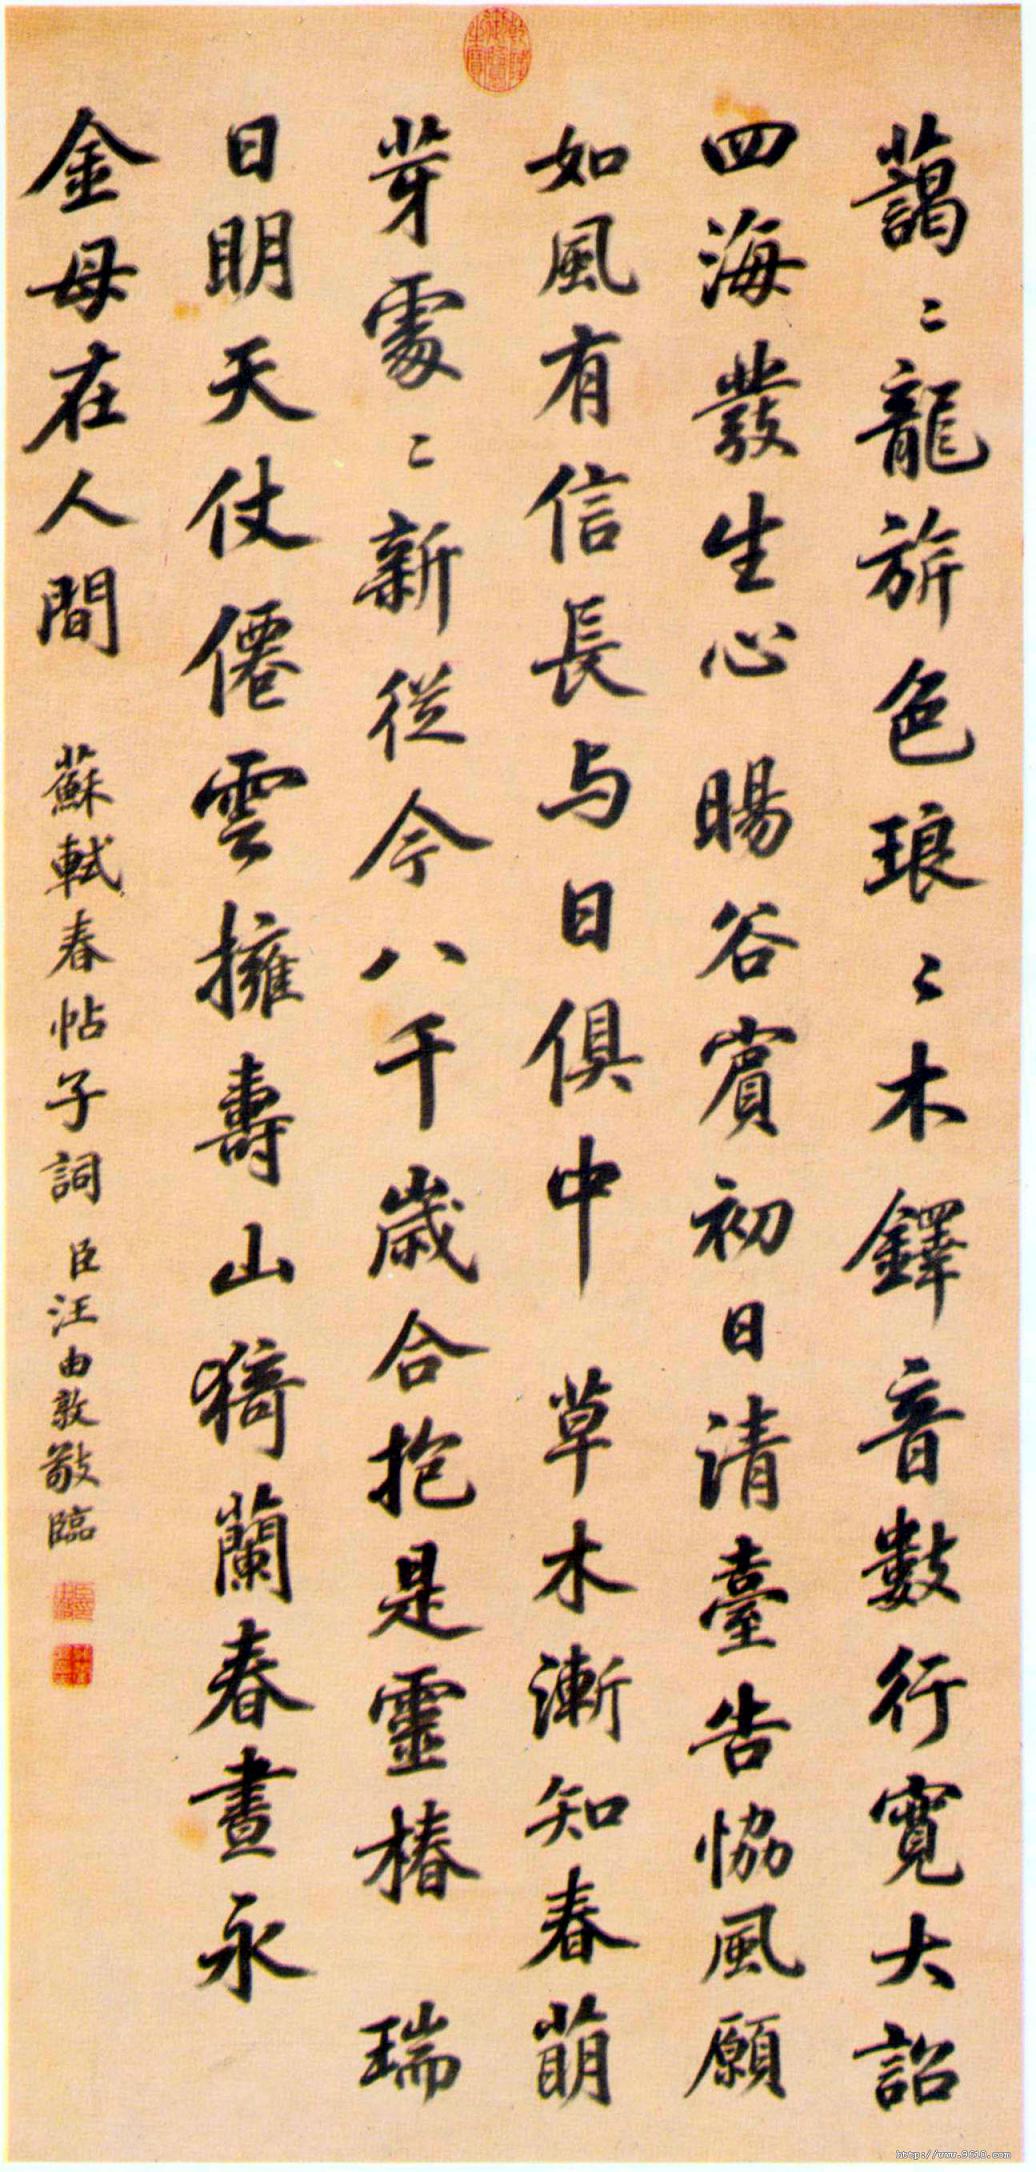 藹〻龍旂色琅〻木鐸音數行寬大詔
四海發生心 暘谷賓初日清臺告協風願
如風有信長与日俱中 草木漸知春萌
芽處〻新從今八千歲合抱是靈椿 瑞
日明天仗僊雲擁壽山猗蘭春晝永
金母在人間 蘇軾春帖子詞 臣汪由敦敬臨
http://www.9610.com